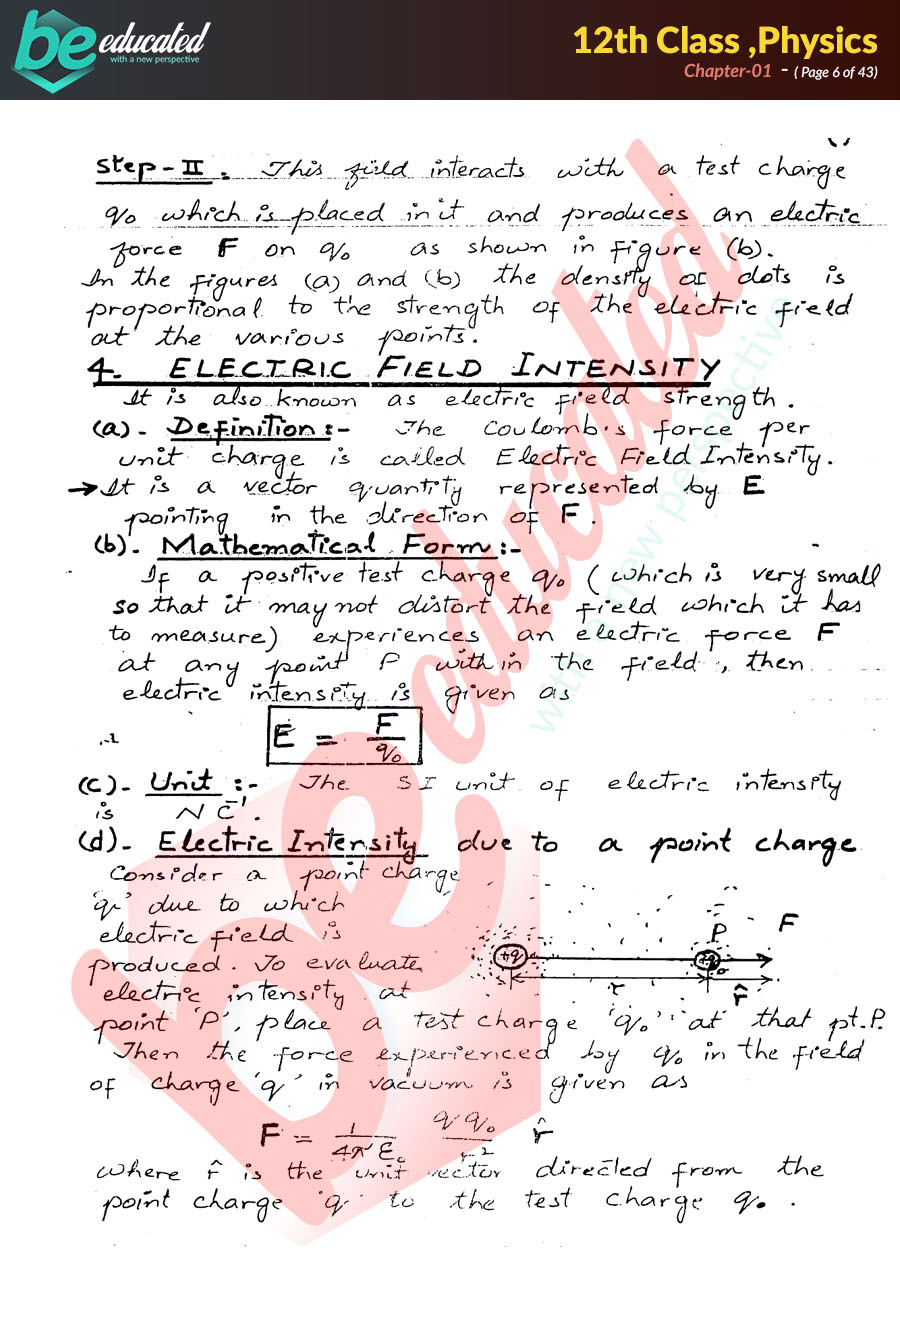 be educated
with a new perspective
12th Class ,Physics
Chapter-01 - ( Page 6 of 43)
Step-II. This field interacts with a test charge
q₀ which is placed in it and produces an electric
force F on q₀ as shown in figure (b).
In the figures (a) and (b) the density of dots is
proportional to the strength of the electric field
at the various points.
4. ELECTRIC FIELD INTENSITY
It is also known as electric field strength.
(a)- Definition:- The Coulomb's force per
unit charge is called Electric Field Intensity.
→ It is a vector quantity represented by E
pointing in the direction of F.
(b)- Mathematical Form:-
If a positive test charge q₀ (which is very small
so that it may not distort the field which it has
to measure) experiences an electric force F
at any point P within the field, then
electric intensity is given as
E = F/q₀
(c)- Unit :- The SI unit of electric intensity
is N C⁻¹.
(d)- Electric Intensity due to a point charge
Consider a point charge
'q' due to which
electric field is
produced. To evaluate
electric intensity at
P F
+q +q₀
r r̂
point 'P', place a test charge 'q₀' at that pt.P.
Then the force experienced by q₀ in the field
of charge 'q' in vacuum is given as
F = 1/4πε₀ q q₀/r² r̂
where r̂ is the unit vector directed from the
point charge 'q' to the test charge q₀.
be educated
with a new perspective